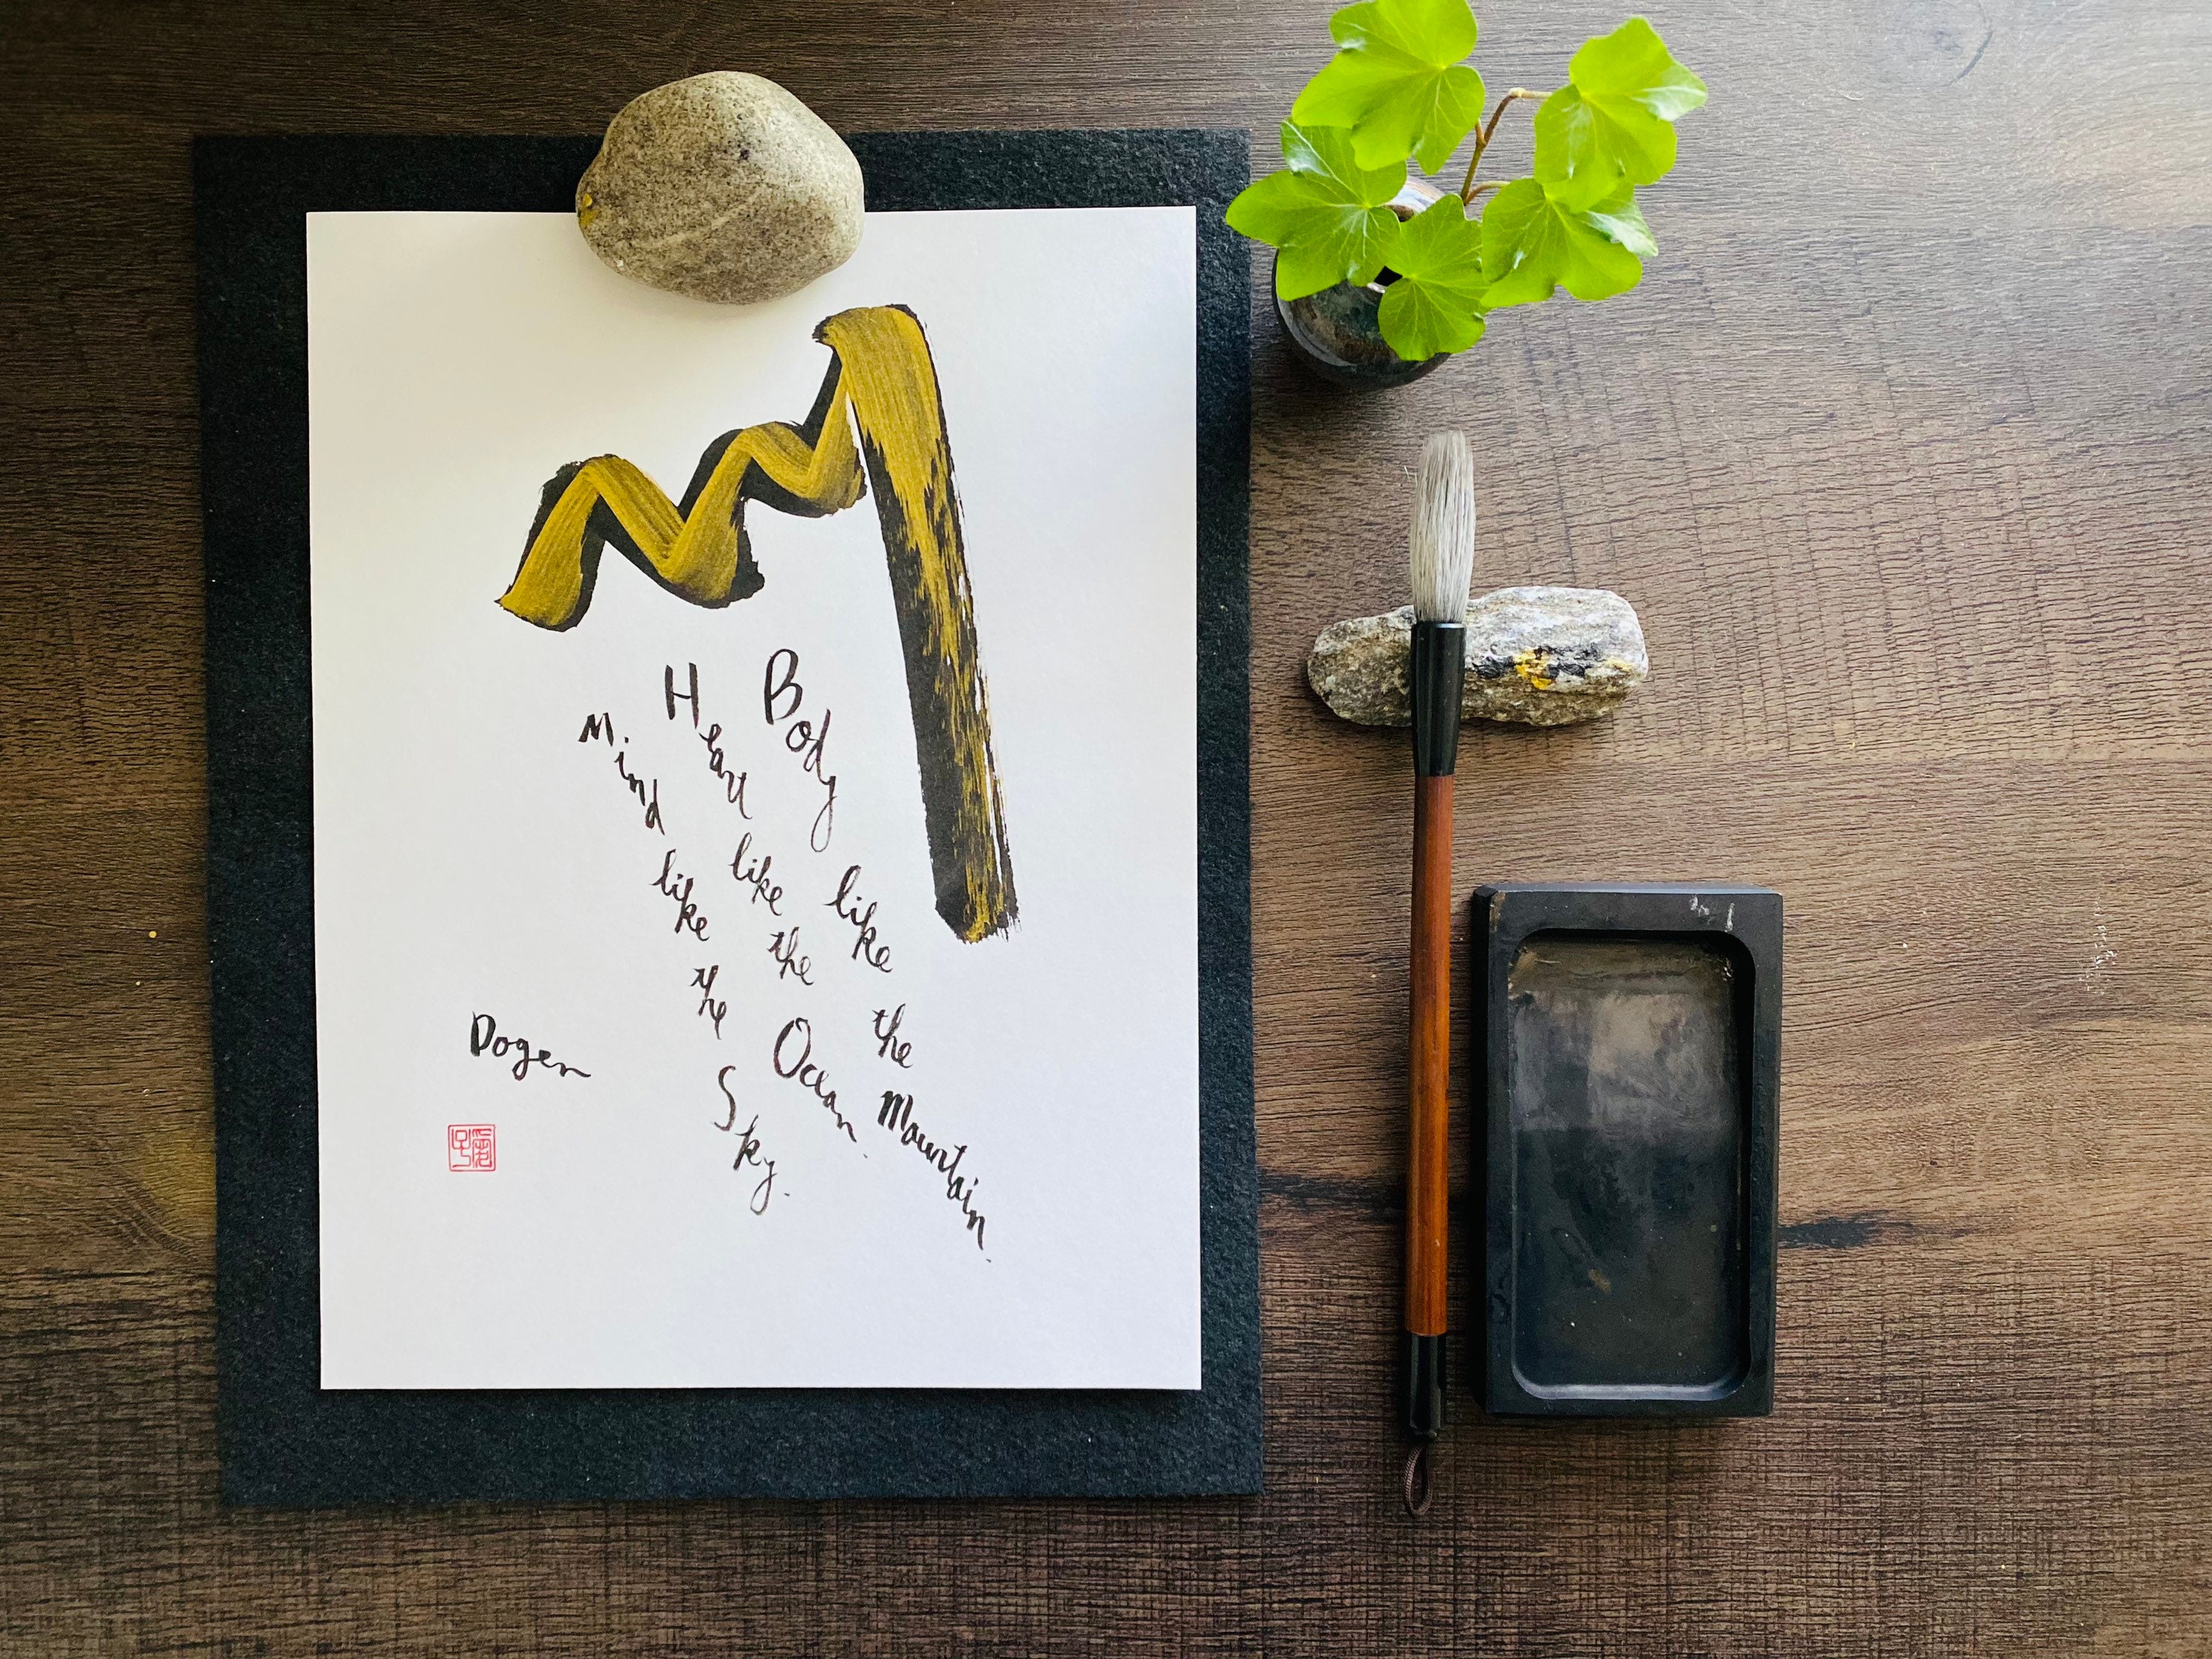 Body like the Mountain.
Heart like the Ocean.
Mind like the Sky.
Dogen